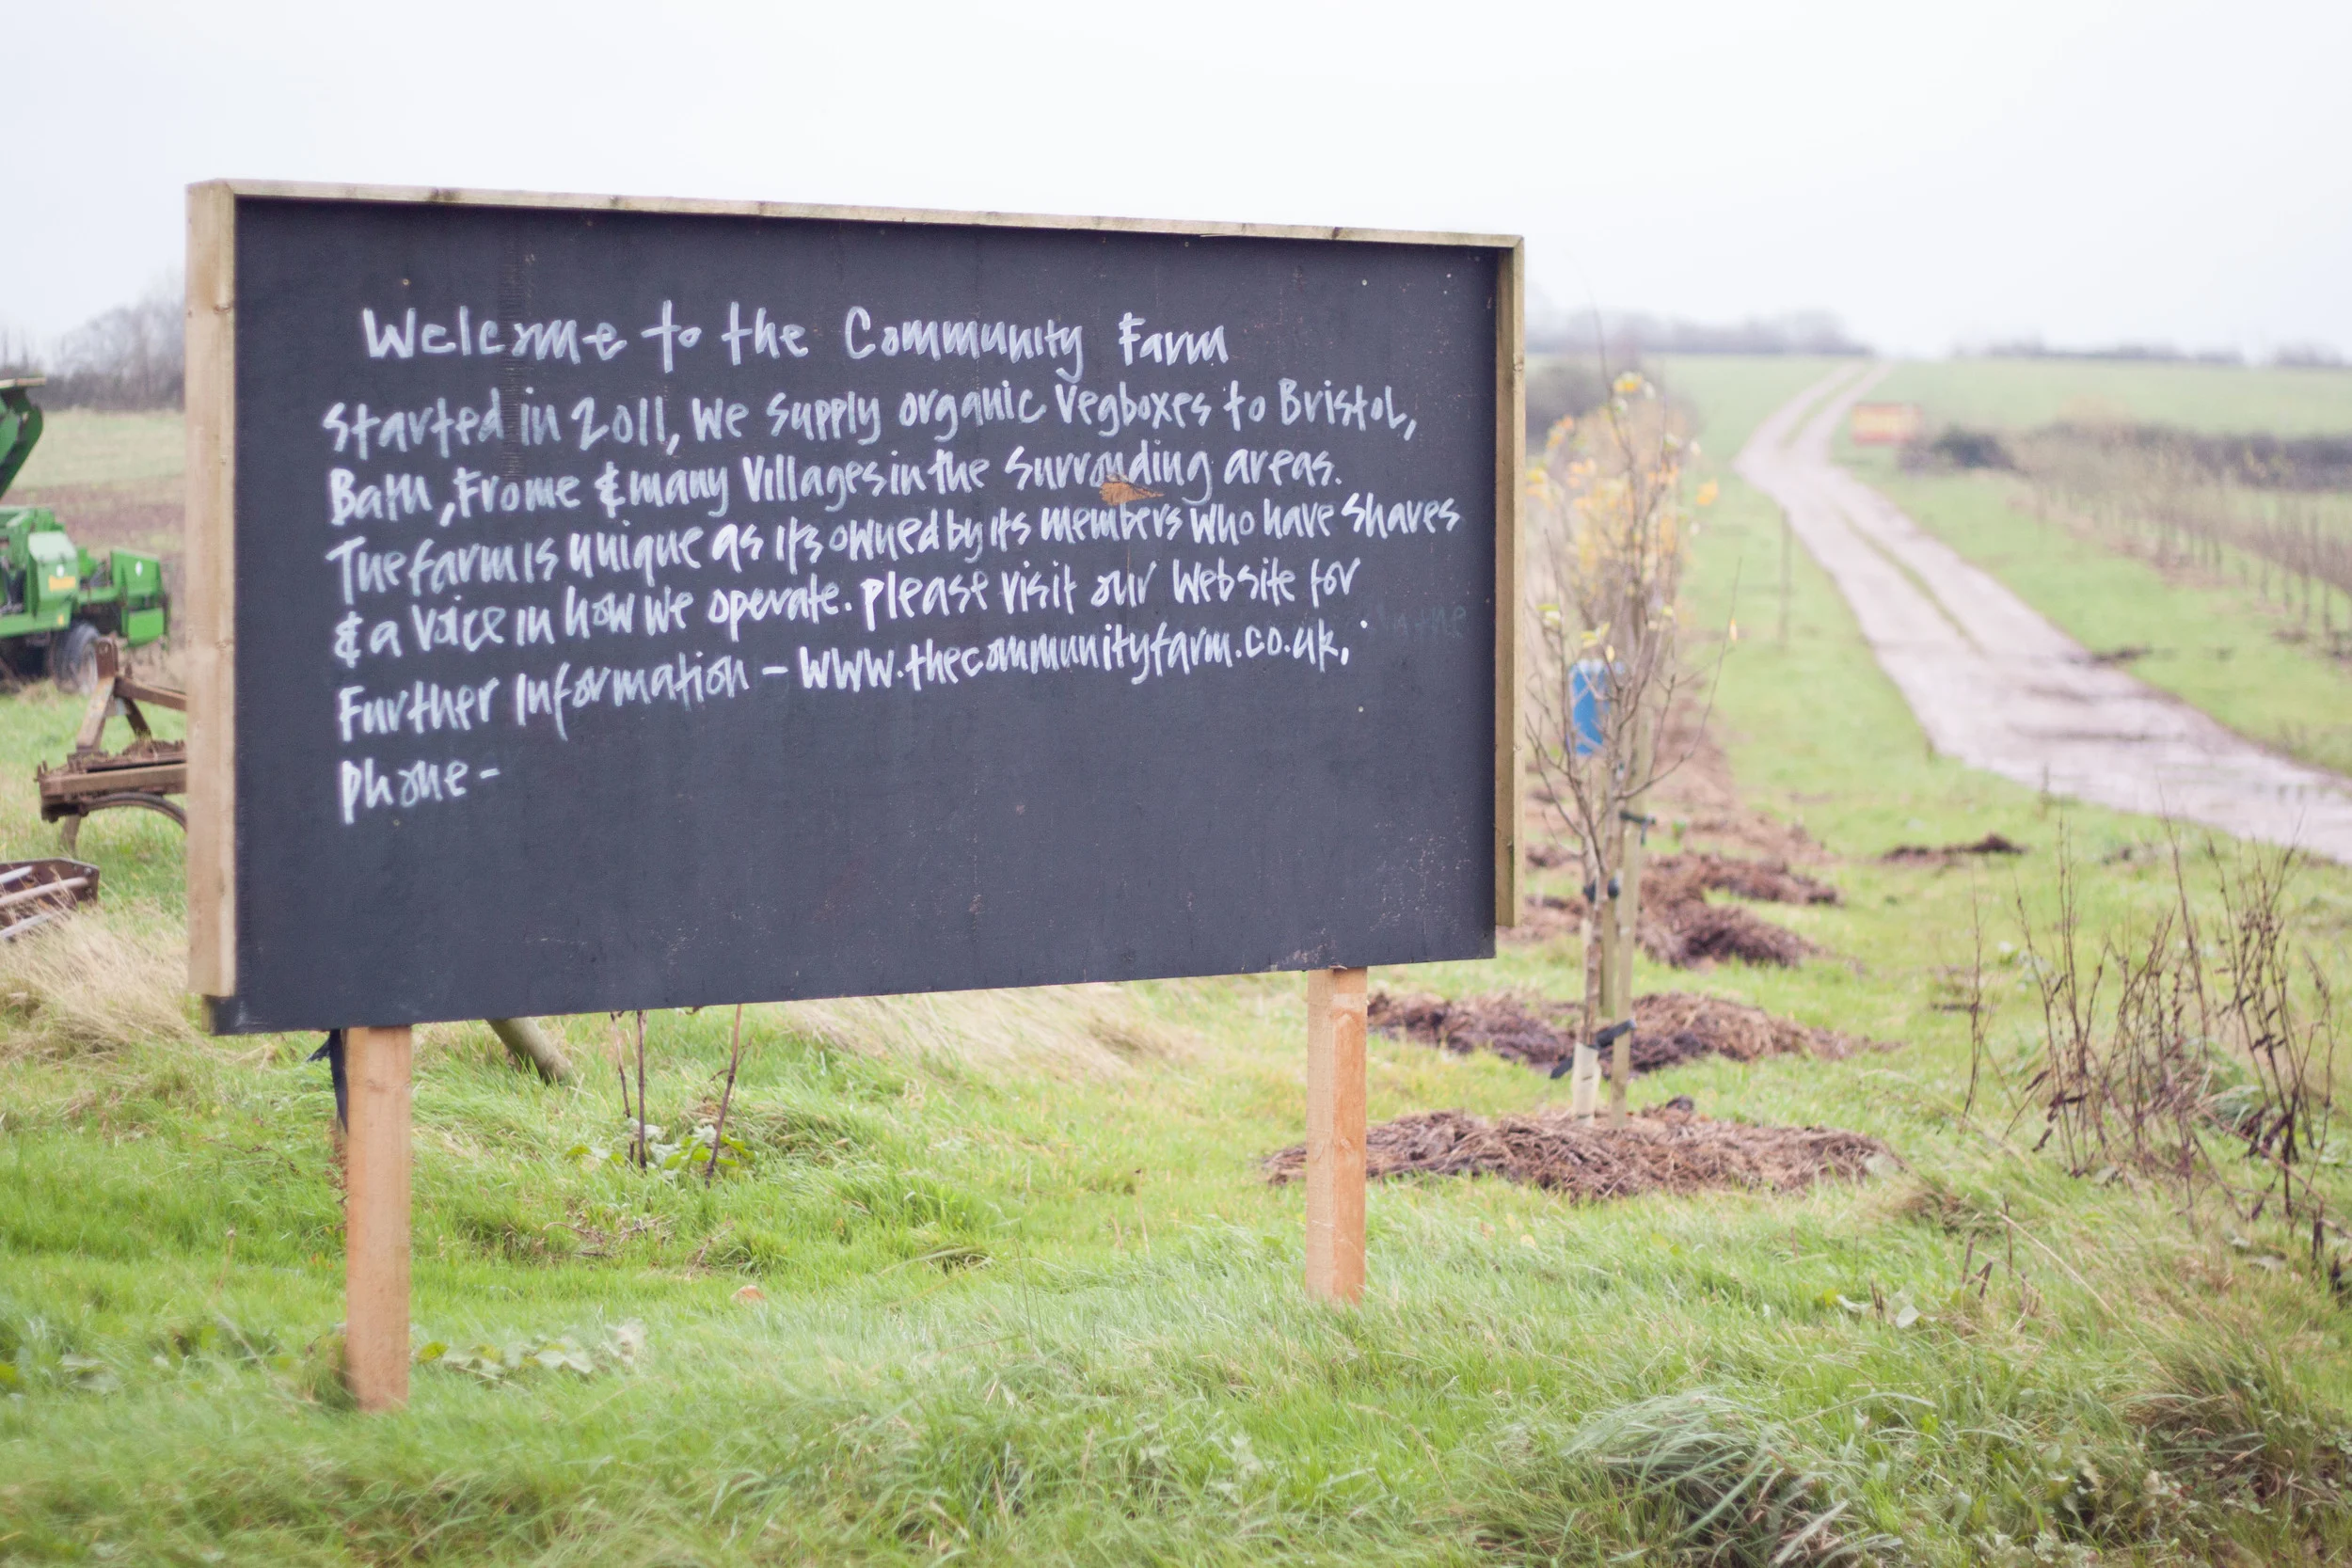 Welcome to the Community Farm
Started in 2011, We Supply organic Vegboxes to Bristol,
Bath, Frome & many Villages in the Surrounding areas.
The farm is unique as it's owned by its members who have Shares
& a voice in how we operate. Please visit our Website for
Further Information - www.thecommunityfarm.co.uk,
Phone -